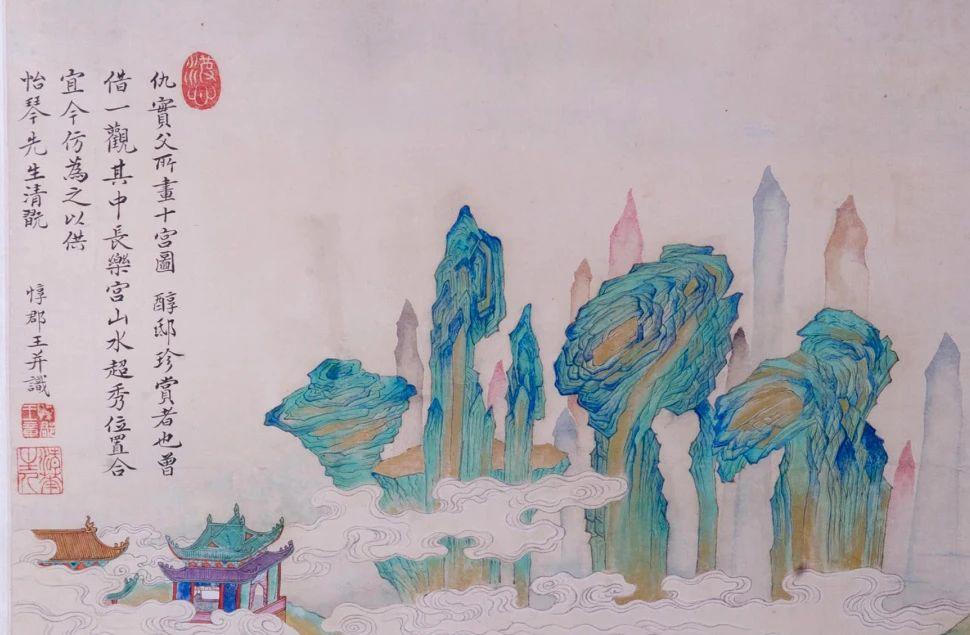 仇實父所畫十宮圖 醇邸珍賞者也曾
借一觀其中長樂宮山水超秀位置合
宜今仿為之以供
怡琴先生清翫
惇郡王并識